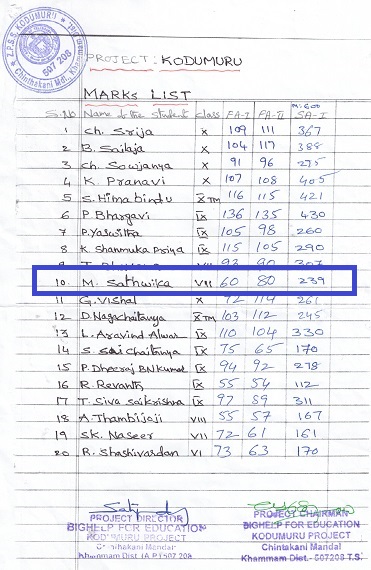 Z.P.S.S. KODUMURU
507 208
Chintakani Mdl, Khammam
PROJECT: KODUMURU
MARKS LIST
M:600
S.No Name of the student class FA-I FA-II SA-I
1 Ch. Srija X 109 111 367
2 B. Sailaja X 104 117 388
3 Ch Sowjanya X 91 96 275
4 K. Pranavi X 107 108 405
5 S. Hima bindu X TM 116 115 421
6 P. Bhargavi IX 136 135 430
7 P. Yaswitha IX 105 98 260
8 K Shanmuka Priya IX 115 105 290
9 VII 93 90 307
10. M. Sathwika VII 60 80 239
11 G. Vishal X 72 114 261
12 D. Nagachaitanya X TM 103 112 245
13 L. Aravind Alwar IX 110 104 330
14 S. Sai Chaitanya IX 75 65 170
15 P. Dheeraj IX 94 92 278
16 R. Revanth IX 55 54 112
17 T. Siva Saikrishna IX 97 89 311
18 A. Thambijaji VIII 55 57 167
19 SK. Naseer VII 72 61 161
20 R. Shashivardan VI 73 63 170
PROJECT DIRECTOR
BIGHELP FOR EDUCATION
KODUMURU PROJECT
Chinthakani Mandal
Khammam Dist. (A.P) 507 208
PROJECT CHAIRMAN
BIGHELP FOR EDUCATION
KODUMURU PROJECT
Chintakani Mandal
Khammam Dist.- 507208 T.S.